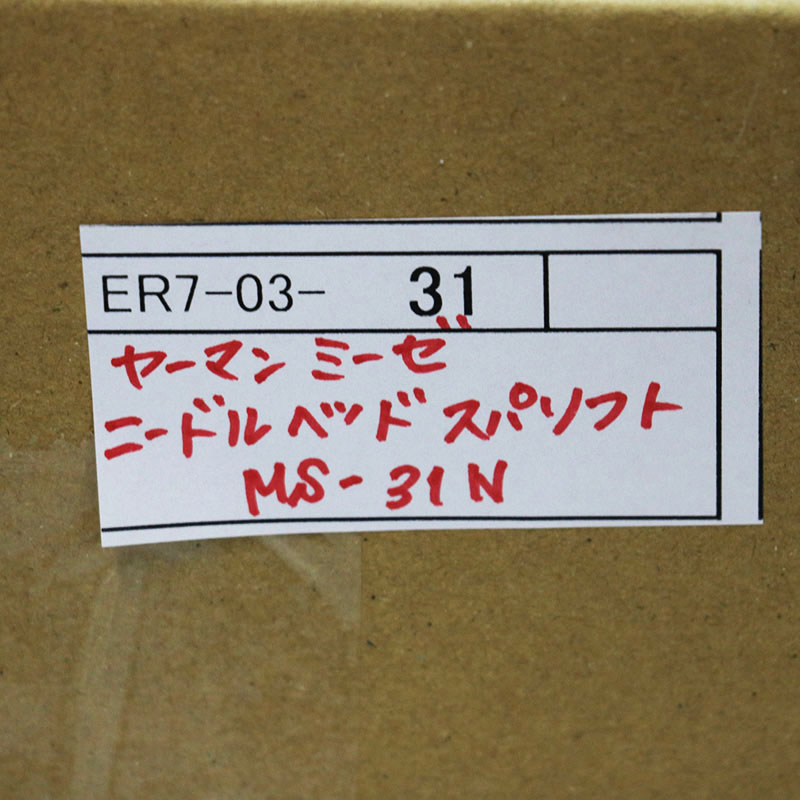 ER7-03- 31
ヤーマン ミーゼ
ニードルヘッド スパソフト
MS-31N